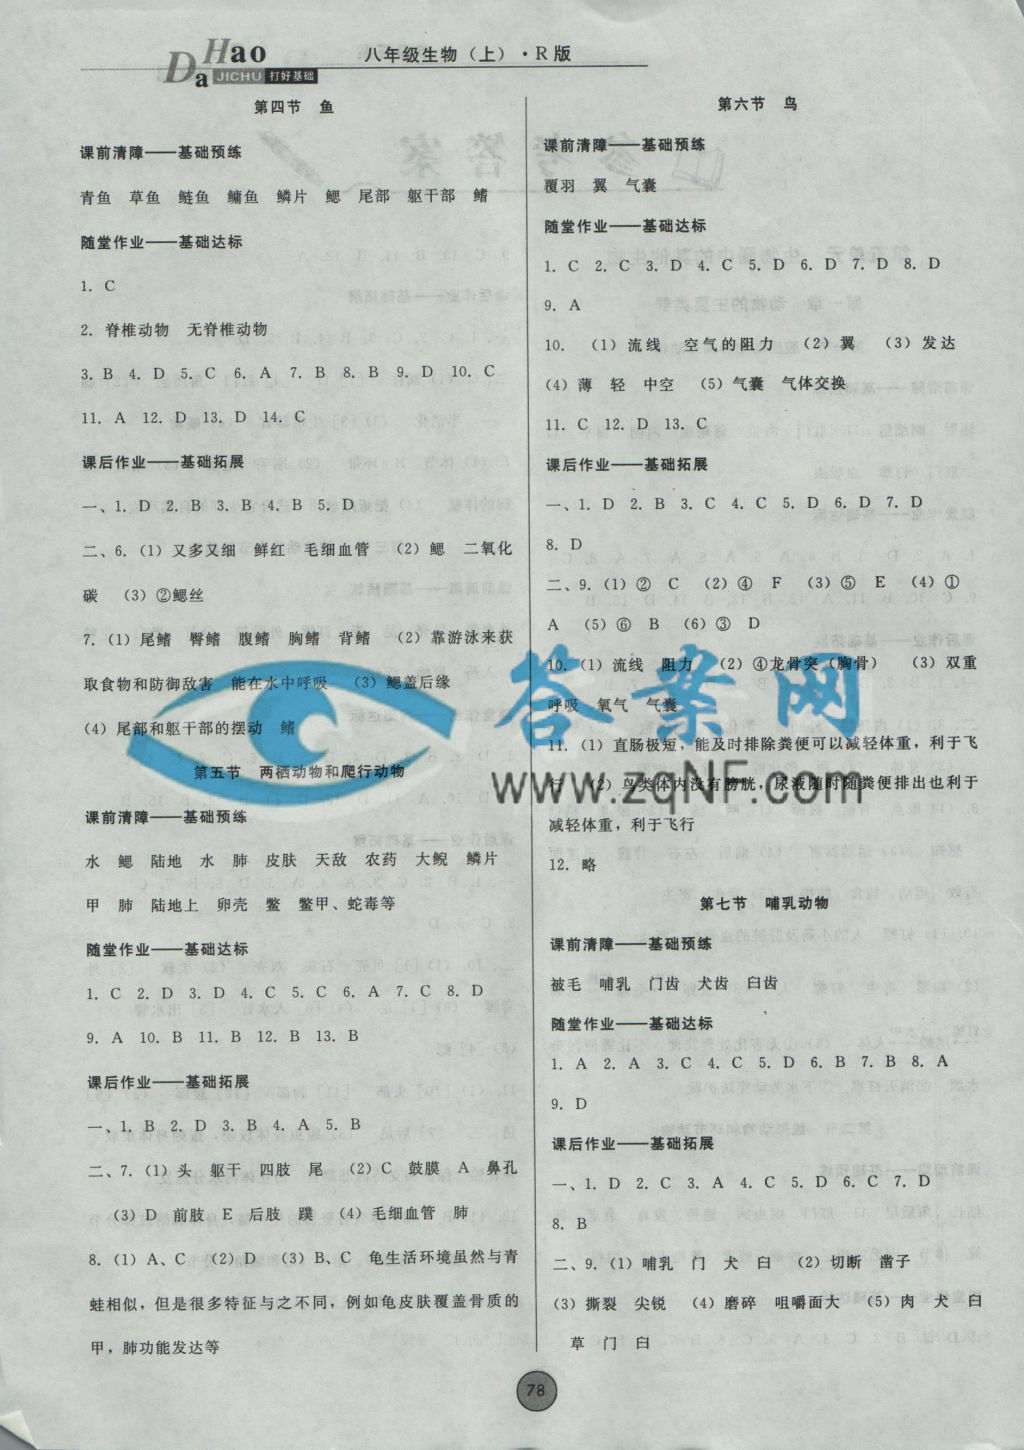 Da Hao
JICHU 打好基础
八年级生物（上）·R版
第四节 鱼
课前清障——基础预练
青鱼 草鱼 鲢鱼 鳙鱼 鳞片 鳃 尾部 躯干部 鳍
随堂作业——基础达标
1. C
2. 脊椎动物 无脊椎动物
3. B 4. D 5. C 6. A 7. B 8. B 9. D 10. C
11. A 12. D 13. D 14. C
课后作业——基础拓展
一、1. D 2. B 3. B 4. B 5. D
二、6.（1）又多又细 鲜红 毛细血管 （2）鳃 二氧化
碳 （3）②鳃丝
7.（1）尾鳍 臀鳍 腹鳍 胸鳍 背鳍 （2）靠游泳来获
取食物和防御敌害 能在水中呼吸 （3）鳃盖后缘
（4）尾部和躯干部的摆动 鳍
第五节 两栖动物和爬行动物
课前清障——基础预练
水 鳃 陆地 水 肺 皮肤 天敌 农药 大鲵 鳞片
甲 肺 陆地上 卵壳 鳖 鳖甲、蛇毒等
随堂作业——基础达标
1. C 2. D 3. D 4. C 5. C 6. A 7. C 8. D
9. A 10. B 11. B 12. B 13. B
课后作业——基础拓展
一、1. B 2. D 3. B 4. A 5. B
二、7.（1）头 躯干 四肢 尾 （2）C 鼓膜 A 鼻孔
（3）D 前肢 E 后肢 蹼 （4）毛细血管 肺
8.（1）A、C （2）D （3）B、C 龟生活环境虽然与青
蛙相似，但是很多特征与之不同，例如龟皮肤覆盖骨质的
甲，肺功能发达等
第六节 鸟
课前清障——基础预练
覆羽 翼 气囊
随堂作业——基础达标
1. C 2. C 3. D 4. C 5. D 6. D 7. D 8. D
9. A
10. （1）流线 空气的阻力 （2）翼 （3）发达
（4）薄 轻 中空 （5）气囊 气体交换
11. C 12. D 13. C
课后作业——基础拓展
一、1. D 2. B 3. C 4. C 5. D 6. D 7. D
8. D
二、9.（1）② C （2）④ F （3）⑤ E （4）①
A （5）⑥ B （6）③ D
10.（1）流线 阻力 （2）④龙骨突（胸骨） （3）双重
呼吸 氧气 气囊
11.（1）直肠极短，能及时排除粪便可以减轻体重，利于飞
行 （2）鸟类体内没有膀胱，尿液随时随粪便排出也利于
减轻体重，利于飞行
12. 略
第七节 哺乳动物
课前清障——基础预练
被毛 哺乳 门齿 犬齿 臼齿
随堂作业——基础达标
1. A 2. A 3. C 4. C 5. D 6. B 7. B 8. A
9. D
课后作业——基础拓展
一、1. D 2. C 3. A 4. C 5. D 6. C 7. D
8. B
二、9.（1）哺乳 门 犬 臼 （2）切断 凿子
（3）撕裂 尖锐 （4）磨碎 咀嚼面大 （5）肉 犬 臼
草 门 臼
答案网
www.zqNF.com
78